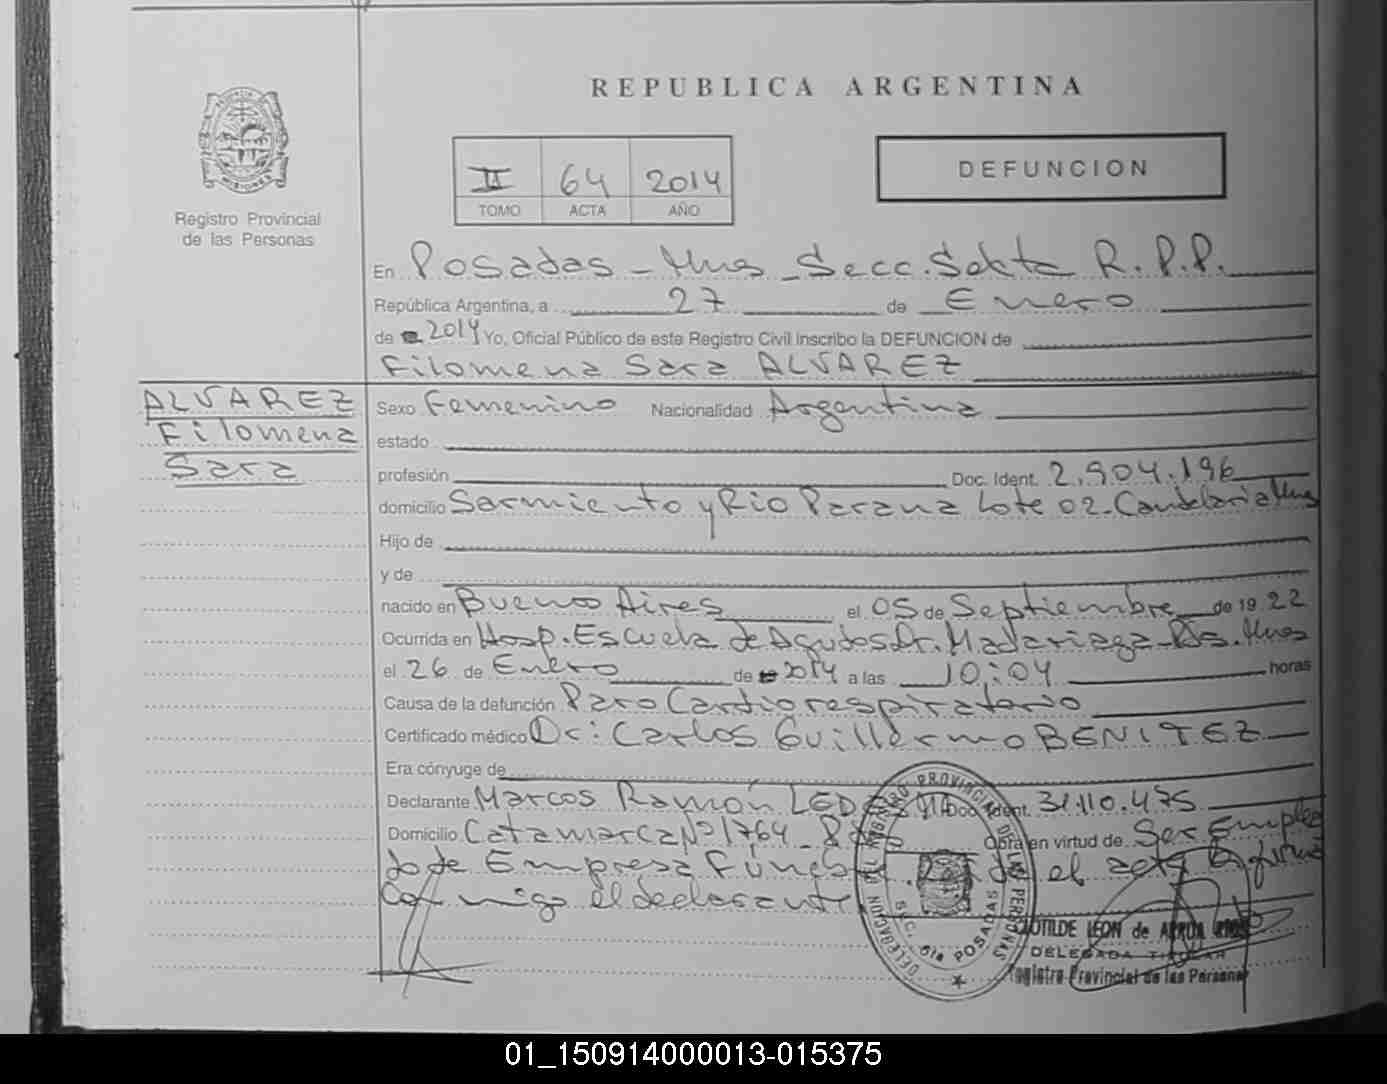 REPUBLICA ARGENTINA
MISIONES
Registro Provincial
de las Personas
II 64 2014
TOMO ACTA AÑO
DEFUNCION
En Posadas - Mnes - Secc. Sexta R.P.P.
República Argentina, a 27 de Enero
de 2014 Yo, Oficial Público de este Registro Civil inscribo la DEFUNCION de
Filomena Sara ALVAREZ
ALVAREZ
Filomena
Sara
Sexo Femenino Nacionalidad Argentina
estado
profesión Doc. Ident. 2.904.196
domicilio Sarmiento y Rio Parana Lote 02 - Candelaria Mnes
Hijo de
y de
nacido en Buenos Aires el 05 de Septiembre de 19 22
Ocurrida en Hosp. Escuela de Agudos Dr. Madariaga - Pdas. Mnes
el 26 de Enero de 2014 a las 10:04 horas
Causa de la defunción Paro Cardiorespiratorio
Certificado médico Dr: Carlos Guillermo BENITEZ
Era cónyuge de
Declarante Marcos Ramón Doc. Ident. 31.110.475
Domicilio Catamarca Nº 1764 - Obra en virtud de Ser Emplea
do de Empresa Fúnebre. el acta la firma
Conmigo el declarante
REGISTRO PROVINCIAL DE LAS PERSONAS
DELEGACION
SEC. 6ta POSADAS
CLOTILDE LEON de
DELEGADA TITULAR
Registro Provincial de las Personas
01_150914000013-015375